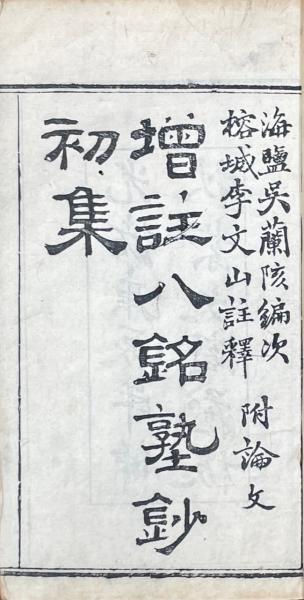 海鹽吳蘭陔編次
榕城李文山註釋 附論文
增註八銘塾鈔
初集